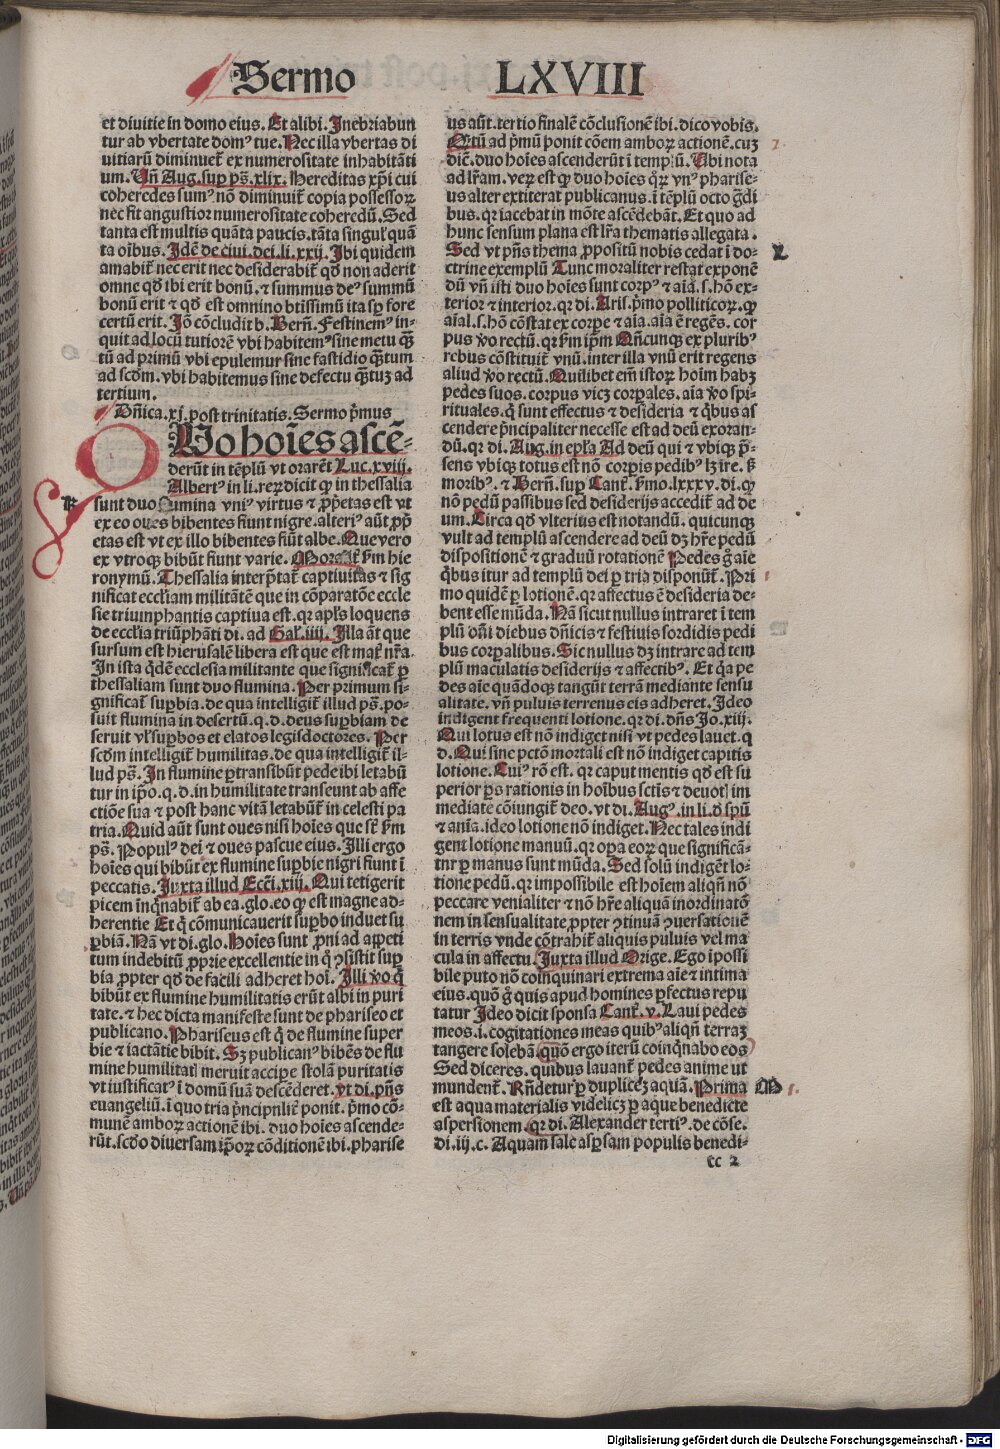 Sermo LXVIII
et diuitie in domo eius. Et alibi. Inebriabun
tur ab vbertate domꝰ tue. Nec illa vbertas di
uitiarū diminuet̄ ex numerositate inhabitāti
um. Un̄ Aug. sup ps̄. xlix. Hereditas xp̄i cui
coheredes sumꝰ nō diminuit̄ copia possessoꝝ
nec fit angustior numerositate coheredū. Sed
tanta est multis quāta paucis. tāta singul' quā
ta oībus. Idē de ciui. dei. li. xxij. Ibi quidem
amabit̄ nec erit nec desiderabit̄ qd̄ non aderit
omne qd̄ ibi erit bonū. ⁊ summus deꝰ summū
bonū erit ⁊ qd̄ est omnino btissimū ita sꝑ fore
certū erit. Jō cōcludit b. Bern̄. Festinemꝰ in-
quit ad locū tutiorē vbi habitemꝰ sine metu qͣ̄
tū ad primū vbi epulemur sine fastidio qͣ̄tum
ad scdm̄. vbi habitemus sine defectu qͣ̄tuꝫ ad
tertium.
Dn̄ica. xj. post trinitatis. Sermo p̄mus
DUo hoīes ascē-
derūt in tēplū vt orarēt Luc. xviij.
Albertꝰ in li. reꝝ dicit ꝙ in thessalia
K
sunt duo flumina vniꝰ virtus ⁊ ꝓp̄etas est vt
ex eo oues bibentes fiunt nigre. alteriꝰ aūt ꝓp̄
etas est vt ex illo bibentes fiūt albe. Que vero
ex vtroqꝫ bibūt fiunt varie. Moralit̄ fm̄ hie
ronymū. Thessalia interp̄tat̄ captiuitas ⁊ sig
nificat eccl'iam militātē que in cōparatōe eccle
sie triumphantis captiua est. qꝛ apl's loquens
de eccl'ia triūphāti di. ad Gal'. iiij. Illa āt que
sursum est hierusalē libera est que est mat̄ nr̄a.
In ista qͥdē ecclesia militante que significat̄ ꝑ
thessaliam sunt duo flumina. Per primum si-
gnificat̄ suꝑbia. de qua intelligit̄ illud ps̄. po-
suit flumina in desertū. q. d. deus suꝑbiam de
seruit vl' suꝑbos et elatos legisdoctores. Per
scdm̄ intelligit̄ humilitas. de qua intelligit̄ il-
lud ps̄. In flumine ꝑtransibūt pede ibi letabū
tur in ip̄o. q. d. in humilitate transeunt ab affe
ctiōe sua ⁊ post hanc vitā letabūt̄ in celesti pa
tria. Quid aūt sunt oues nisi hoīes que sr̄ fm̄
ps̄. Populꝰ dei ⁊ oues pascue eius. Illi ergo
hoīes qui bibūt ex flumine suꝑbie nigri fiunt ī
peccatis. Iuxta illud Ecc̄i. xiij. Qui tetigerit
picem inqͥnabit̄ ab ea. glo. eo ꝙ est magne ad-
herentie Et qͥ cōmunicauerit suꝑbo induet su
ꝑbiā. Nā vt di. glo. Hoīes sunt ꝓni ad appeti
tum indebitū ꝓprie excellentie in qͦ ꝯsistit suꝑ
bia ꝓpter qd̄ de facili adheret hoī. Illi v̄o qͥ
bibūt ex flumine humilitatis erūt albi in puri
tate. ⁊ hec dicta manifeste sunt de phariseo et
publicano. Phariseus est qͥ de flumine super
bie ⁊ iactātie bibit. Sꝫ publicanꝰ bibēs de flu
mine humilitatꝭ meruit accipe stolā puritatis
vt iustificatꝰ ī domū suā descēderet. vt di. pn̄s
euangeliū. ī quo tria p̄ncipalit̄ ponit. p̄mo cō-
munē amboꝝ actionē ibi. duo hoīes ascende-
rūt. scdo diuersam ip̄oꝝ cōditionē ibi. pharise
us aūt. tertio finalē cōclusionē ibi. dico vobis.
Qͣ̄tū ad p̄mū ponit cōem amboꝝ actionē. cuꝫ
dic̄. duo hoīes ascenderūt ī templū. Ubi nota
ad lr̄am. veꝝ est ꝙ duo hoīes qꝛ vnꝰ pharise-
us alter extiterat publicanus. ī tēplū octo gͣdi
bus. qꝛ iacebat in mōte ascēdebāt. Et quo ad
hunc sensum plana est lr̄a thematis allegata.
Sed vt pn̄s thema ꝓpositū nobis cedat ī do-
L
ctrine exemplū Tunc moraliter restat exponē
dū vn̄ isti duo hoīes sunt corpꝰ ⁊ aīa. s. hō ex-
terior ⁊ interior. qꝛ di. Aris. p̄mo polliticoꝝ. ꝙ
aīal. s. hō cōstat ex corpe ⁊ aīa. aīa ē regēs. cor
pus v̄o rectū. qꝛ fm̄ ip̄m Qn̄cunqꝫ ex pluribꝰ
rebus cōstituit̄ vnū. inter illa vnū erit regens
aliud v̄o rectū. Quilibet em̄ istoꝝ hoīm habꝫ
pedes suos. corpus vicꝫ corpales. aīa v̄o spi-
rituales. qͥ sunt effectus ⁊ desideria ⁊ qͥbus as
cendere p̄ncipaliter necesse est ad deū exoran-
dū. qꝛ di. Aug. in epl'a Ad deū qui ⁊ vbiqꝫ p̄-
sens vbiqꝫ totus est nō corpis pedibꝰ lꝫ ire. ß
moribꝰ. ⁊ Bern̄. sup Cant̄. ẜmo. lxxxv. di. ꝙ
nō pedū passibus sed desiderijs accedit̄ ad de
um. Circa qd̄ vlterius est notandū. quicunqꝫ
vult ad templū ascendere ad deū dꝫ hr̄e pedū
dispositionē ⁊ graduū rotationē Pedes gͦ aīe
qͥbus itur ad templū dei ꝑ tria disponūt̄. Pri
mo quidē ꝑ lotionē. qꝛ affectus ⁊ desideria de-
bent esse mūda. Nā sicut nullus intraret ī tem
plū dn̄i diebus dn̄icis ⁊ festiuis sordidis pedi
bus corꝑalibus. Sic nullus dꝫ intrare ad tem
plū maculatis desiderijs ⁊ affectibꝰ. Et qͥa pe
des aīe quādoqꝫ tangūt terrā mediante sensu
alitate. vn̄ puluis terrenus eis adheret. Ideo
indigent frequenti lotione. qꝛ di. dn̄s Jo. xiij.
Qui lotus est nō indiget nisi vt pedes lauet. q
d. Qui sine pctō mortali est nō indiget capitis
lotione. Cuiꝰ rō est. qꝛ caput mentis qd̄ est su
perior ꝑs rationis in hoībus sctīs ⁊ deuotꝭ im
mediate cōiungit̄ deo. vt di. Augꝰ. in li. d̓ spū
⁊ aīa. ideo lotione nō indiget. Nec tales indi
gent lotione manuū. qꝛ oꝑa eoꝝ que significā-
tur ꝑ manus sunt mūda. Sed solū indigēt lo-
tione pedū. qꝛ impossibile est hoīem aliqn̄ nō
peccare venialiter ⁊ nō hr̄e aliquā inordinatō
nem in sensualitate ꝓpter ꝯtinuā ꝯuersationē
in terris vnde cōtrahit̄ aliquis puluis vel ma
cula in affectu. Iuxta illud Orige. Ego ipossi
bile puto nō coinquinari extrema aīe ⁊ intima
eius. quō gͦ quis apud homines ꝑfectus repu
tatur Ideo dicit sponsa Cant̄. v. Laui pedes
meos. i. cogitationes meas quibꝰ aliqn̄ terraꝫ
tangere solebā. quō ergo iterū coinqͥnabo eos
Sed diceres. quibus lauant̄ pedes anime ut
mundent̄. Rn̄detur ꝑ dupliceꝫ aquā. Prima
M
est aqua materialis videlicꝫ ꝑ aque benedicte
aspersionem. qꝛ di. Alexander tertiꝰ. de cōse.
di. iij. c. Aquam sale asꝑsam populis benedi-
cc 2
Digitalisierung gefördert durch die Deutsche Forschungsgemeinschaft - DFG